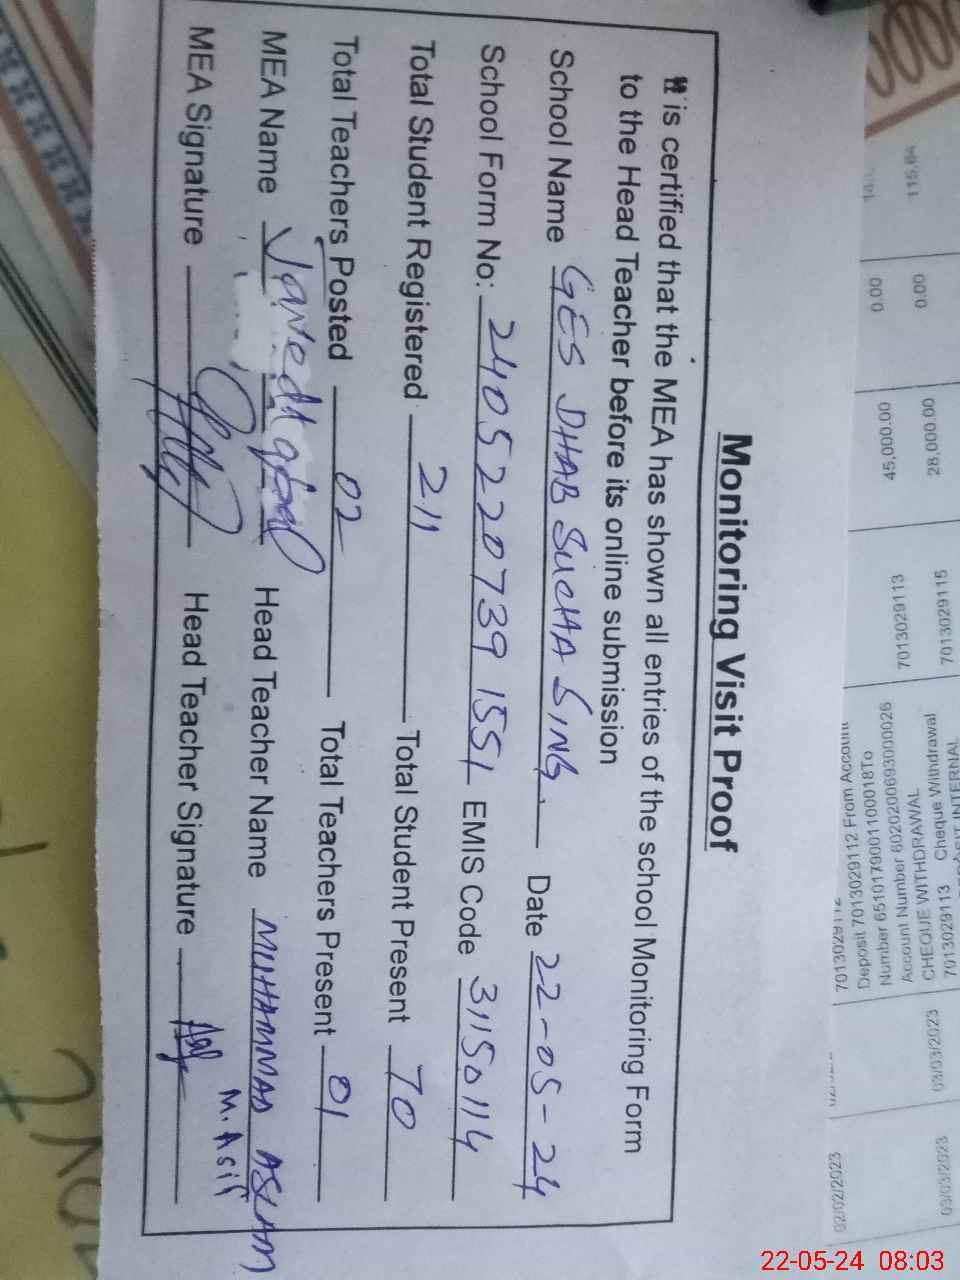 Monitoring Visit Proof
It is certified that the MEA has shown all entries of the school Monitoring Form
to the Head Teacher before its online submission
School Name GES DHAB SUCHA SING. Date 22-05-24
School Form No: 24052207391551 EMIS Code 31150114
Total Student Registered 211 Total Student Present 70
Total Teachers Posted 02 Total Teachers Present 01
MEA Name Javed Iqbal Head Teacher Name MUHAMMAD ASLAM
M. Asif
MEA Signature Head Teacher Signature
115,64
0.00
0.00
45,000.00
28,000.00
7013029113
7013029115
Deposit 7013029112 From Account
Number 6510179001100018To
Account Number 6020200693000026
CHEQUE WITHDRAWAL
7013029113 Cheque Withdrawal
02/02/2023
03/03/2023
03/03/2023
22-05-24 08:03